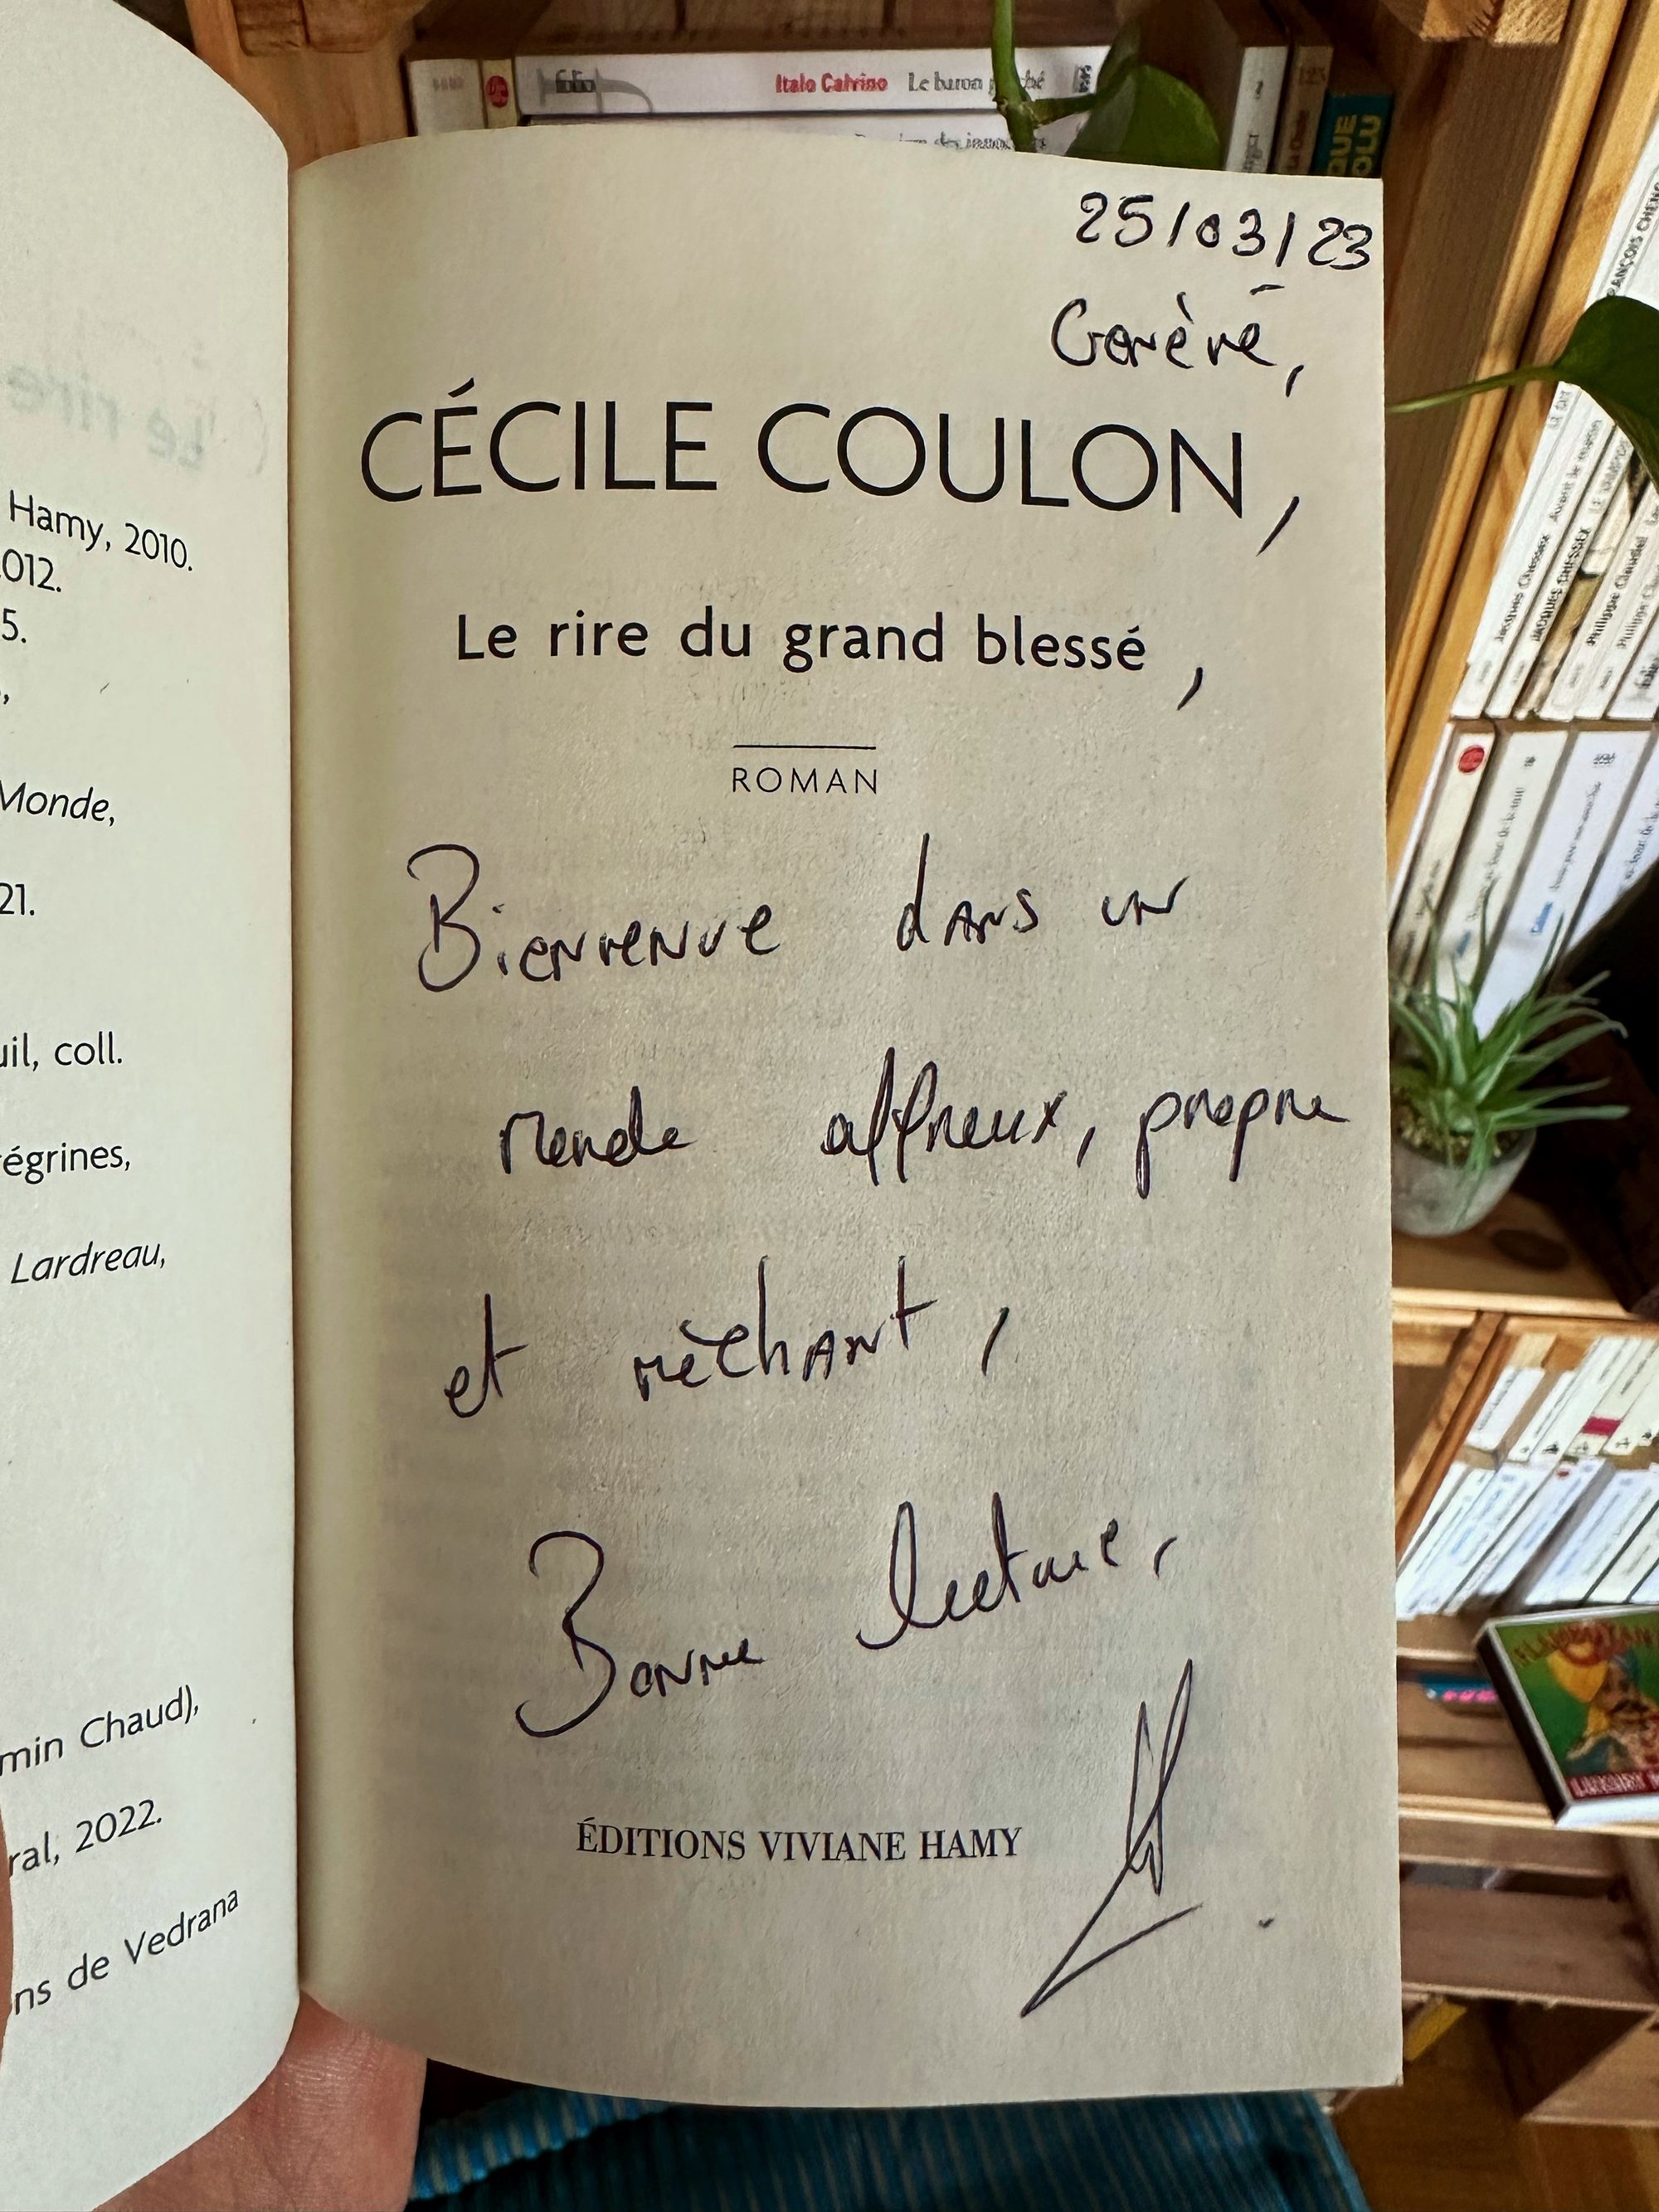 Hamy, 2010.
012.
5.
Monde,
21.
uil, coll.
égrines,
Lardreau,
min Chaud),
ral, 2022.
ns de Vedrana
25/03/23
Genève,
CÉCILE COULON,
Le rire du grand blessé,
ROMAN
Bienvenue dans un
monde affreux, propre
et méchant,
Bonne lecture,
ÉDITIONS VIVIANE HAMY
folio Italo Calvino Le baron
FRANÇOIS CHENG
Jacques Chessex Avant le matin
JACQUES CHESSEX
Philippe Claudel